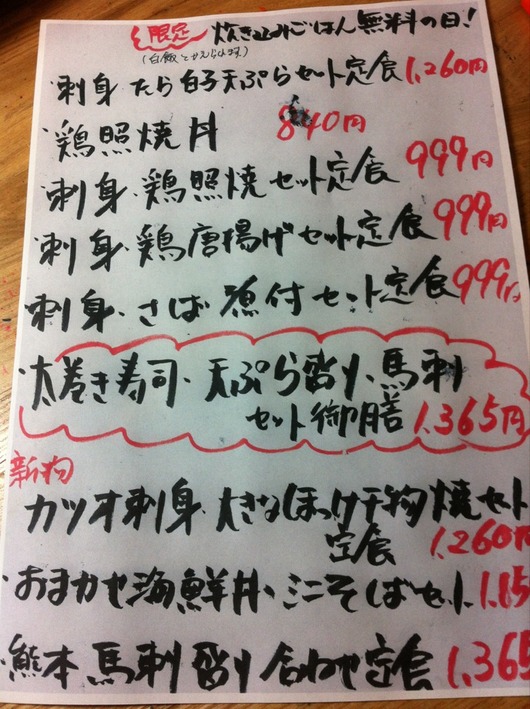 限定 炊き込みごはん無料の日!
(白飯とかえられます)
・刺身・たら白子天ぷらセット定食 1,260円
・鶏照焼丼 840円
・刺身・鶏照焼セット定食 999円
・刺身・鶏唐揚げセット定食 999円
・刺身・さば煮付セット定食 999円
・太巻き寿司・天ぷら盛り、馬刺
セット御膳 1,365円
新物
カツオ刺身 大きなほっけ干物焼セット
定食 1,260円
・おまかせ海鮮丼・ミニそばセット 1,15
・熊本馬刺盛り合わせ定食 1,365